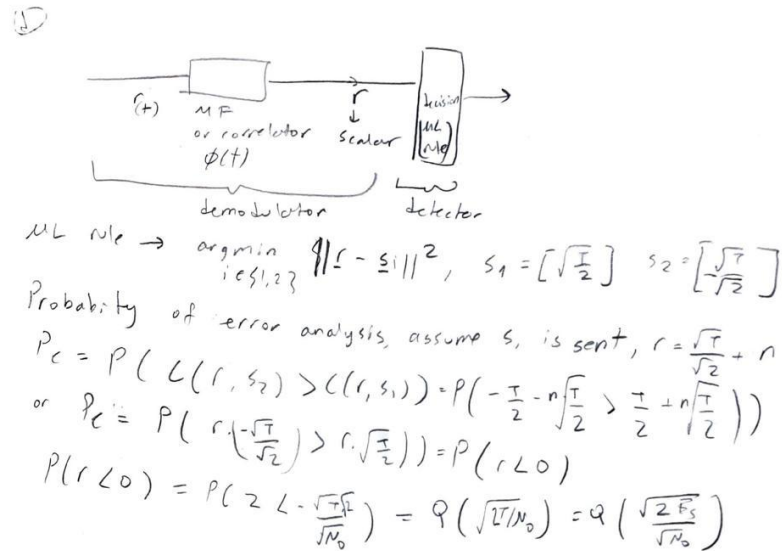 1)
r(t)
MF
or correlator
ϕ(t)
r
↓
scalar
decision
[ML
rule]
demodulator
detector
ML rule → argmin i∈{1,2} ||r - si||², s1 = [√(T/2)] s2 = [-√T/√2]
Probabity of error analysis, assume s, is sent, r = √T/√2 + n
Pe = P( C(r, s2) > C(r, s1)) = P(-T/2 - n√(T/2) > T/2 + n√(T/2)))
or Pe = P( r.(-√T/√2) > r.√(T/2))) = P(r<0)
P(r<0) = P(z < -√T√2/√N0) = Q(√(2T/N0)) = Q(√(2Es)/√N0)